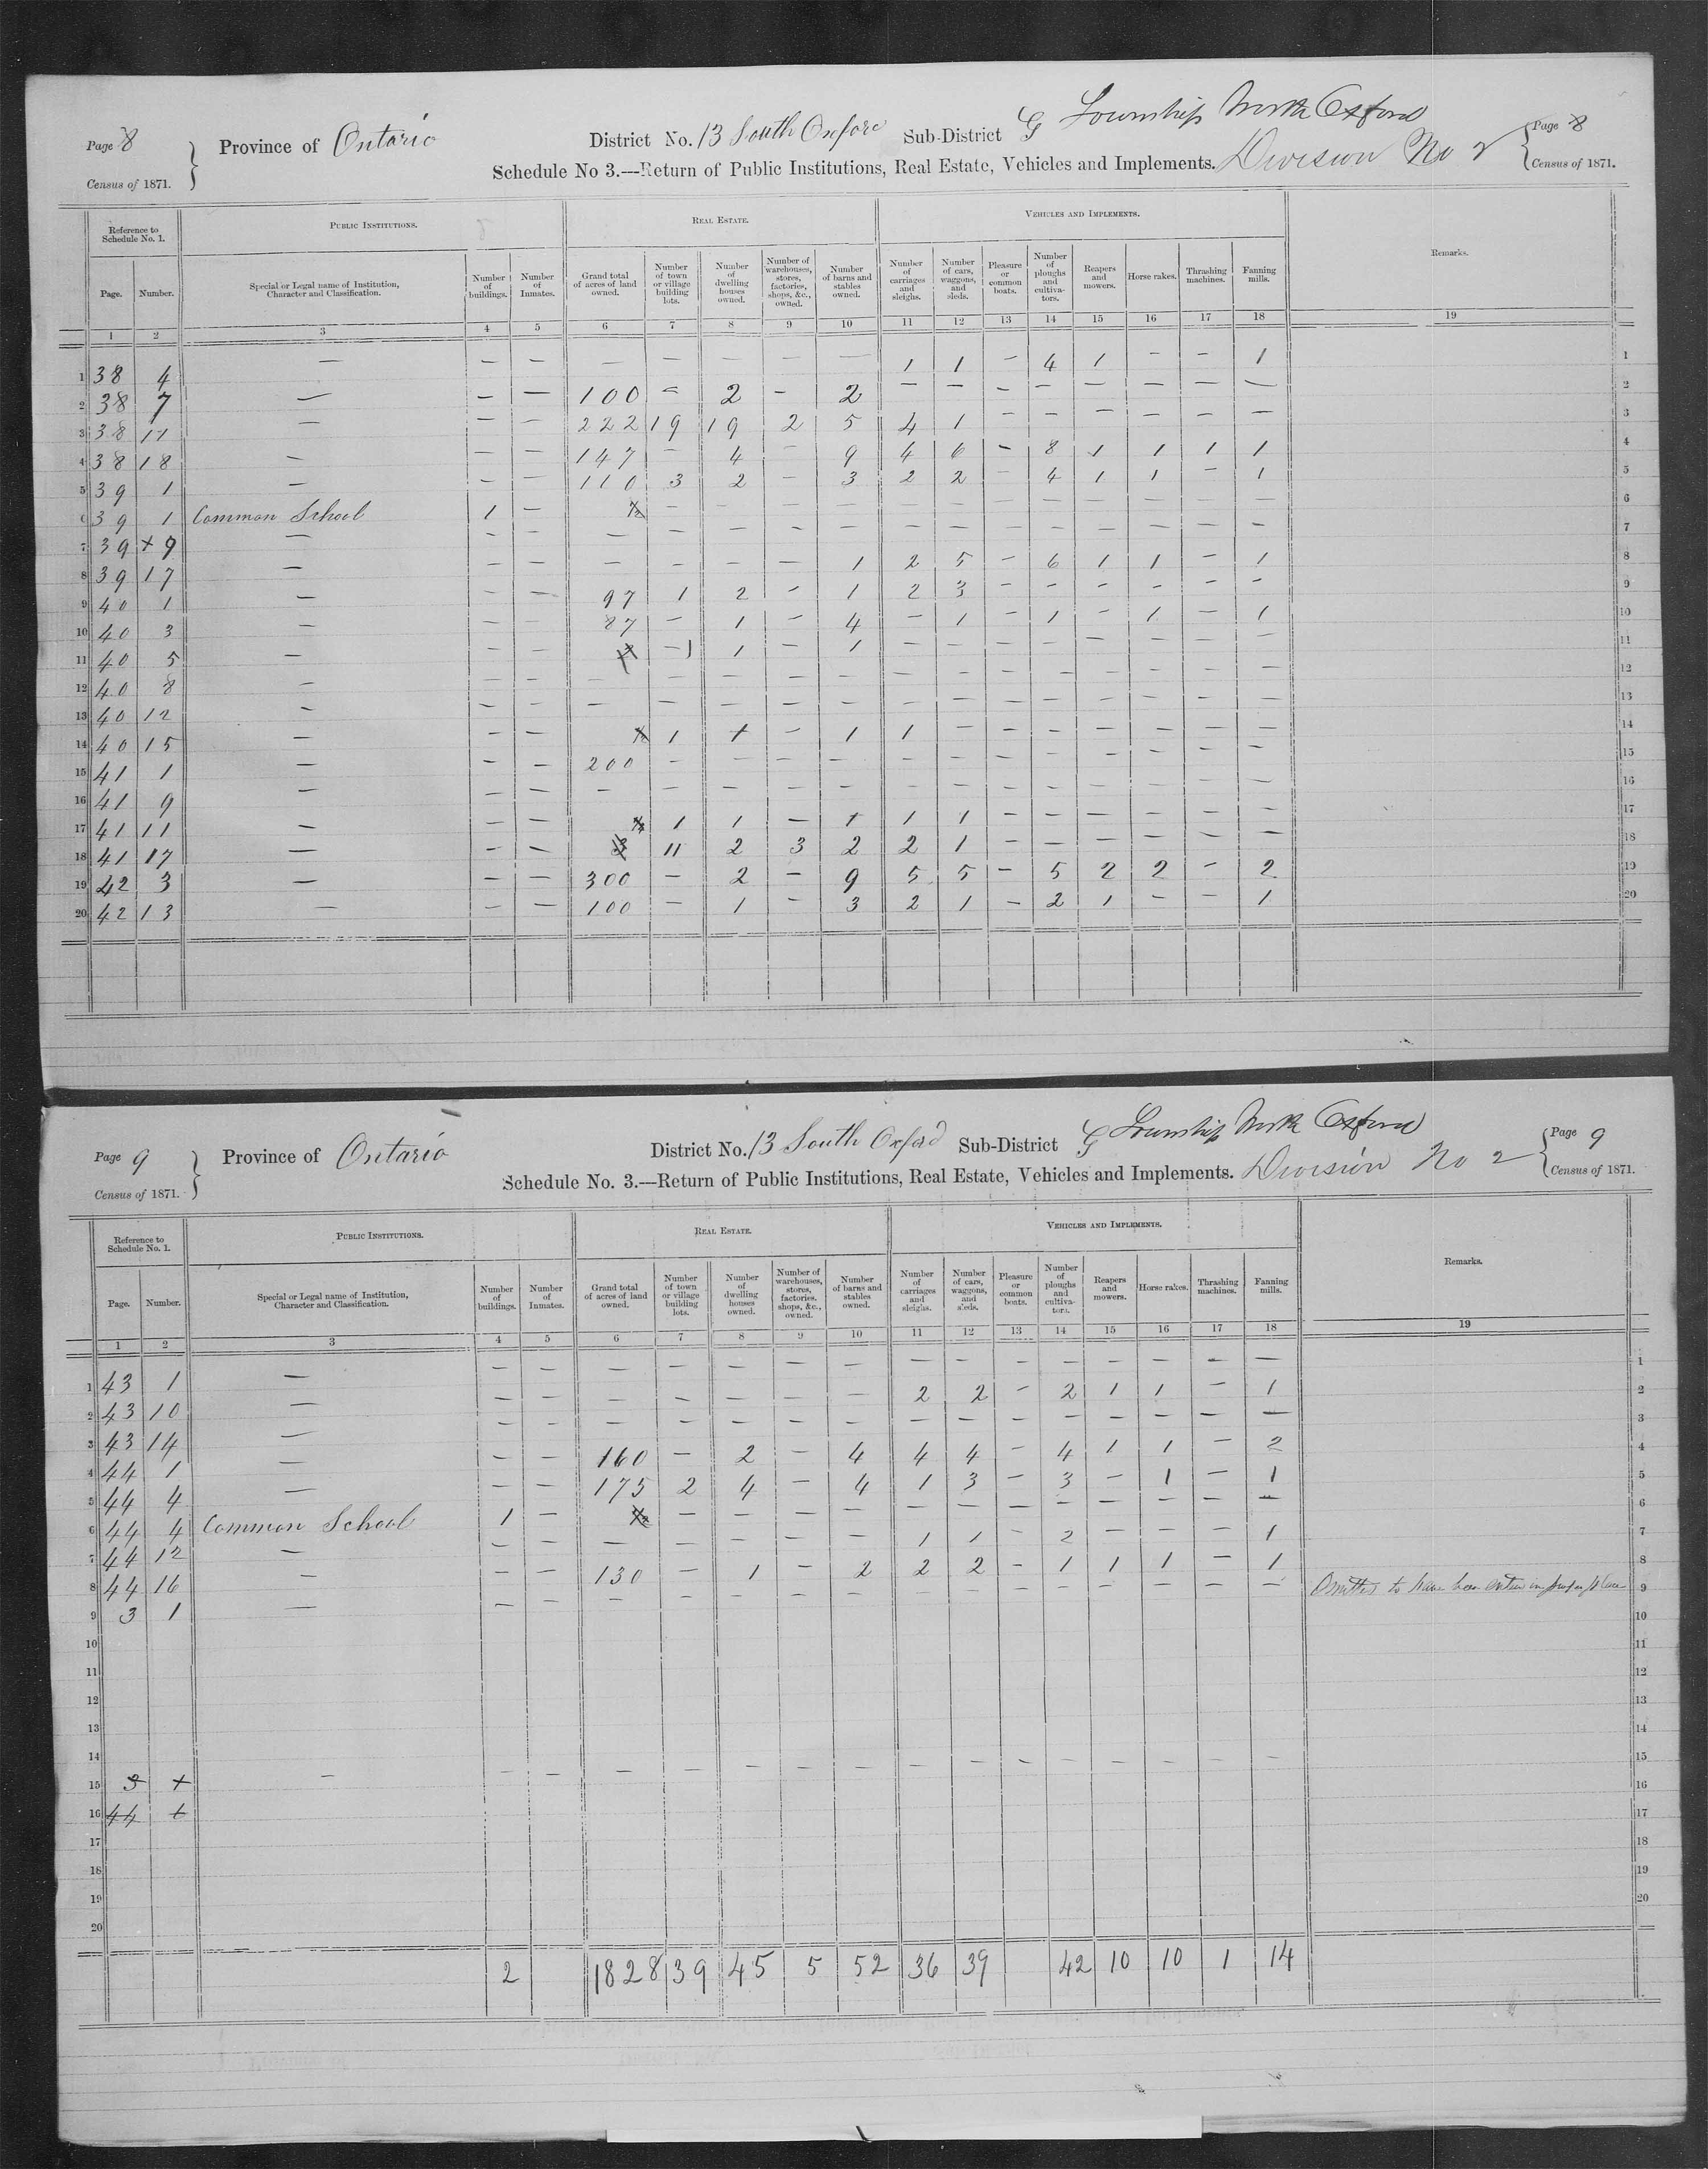 Page 8
Census of 1871.
Province of Ontario
District No. 13 South Oxford Sub-District G Township North Oxford
Schedule No 3.---Return of Public Institutions, Real Estate, Vehicles and Implements. Division No 2
Page 8
Census of 1871.
Reference to Schedule No. 1. PUBLIC INSTITUTIONS. REAL ESTATE. VEHICLES AND IMPLEMENTS. Remarks.
Page. Number. Special or Legal name of Institution, Character and Classification. Number of buildings. Number of Inmates. Grand total of acres of land owned. Number of town or village building lots. Number of dwelling houses owned. Number of warehouses, stores, factories, shops, &c., owned. Number of barns and stables owned. Number of carriages and sleighs. Number of cars, waggons, and sleds. Pleasure or common boats. Number of ploughs and cultivators. Reapers and mowers. Horse rakes. Thrashing machines. Fanning mills.
1 2 3 4 5 6 7 8 9 10 11 12 13 14 15 16 17 18 19
1 38 4 — — — — — — — — 1 1 — 4 1 — — 1 1
2 38 7 — — — 100 — 2 — 2 — — — — — — — — 2
3 38 11 — — — 222 19 19 2 5 4 1 — — — — — — 3
4 38 18 — — — 147 — 4 — 9 4 6 — 8 1 1 1 1 4
5 39 1 — — — 110 3 2 — 3 2 2 — 4 1 1 — 1 5
6 39 1 Common School 1 — ½ — — — — — — — — — — — — 6
7 39 + 9 — — — — — — — — — — — — — — — — 7
8 39 17 — — — — — — — 1 2 5 — 6 1 1 — 1 8
9 40 1 — — — 97 1 2 — 1 2 3 — — — — — — 9
10 40 3 — — — 87 — 1 — 4 — 1 — 1 — 1 — 1 10
11 40 5 — — — — 1 1 — 1 — — — — — — — — 11
12 40 8 — — — — — — — — — — — — — — — — 12
13 40 12 — — — — — — — — — — — — — — — — 13
14 40 15 — — — ½ 1 1 — 1 1 — — — — — — — 14
15 41 1 — — — 200 — — — — — — — — — — — — 15
16 41 9 — — — — — — — — — — — — — — — — 16
17 41 11 — — — ½ 1 1 — 1 1 1 — — — — — — 17
18 41 17 — — — 3 11 2 3 2 2 1 — — — — — — 18
19 42 3 — — — 300 — 2 — 9 5 5 — 5 2 2 — 2 19
20 42 13 — — — 100 — 1 — 3 2 1 — 2 1 — — 1 20
Page 9
Census of 1871.
Province of Ontario
District No. 13 South Oxford Sub-District G Township North Oxford
Schedule No. 3.---Return of Public Institutions, Real Estate, Vehicles and Implements. Division No 2
Page 9
Census of 1871.
Reference to Schedule No. 1. PUBLIC INSTITUTIONS. REAL ESTATE. VEHICLES AND IMPLEMENTS. Remarks.
Page. Number. Special or Legal name of Institution, Character and Classification. Number of buildings. Number of Inmates. Grand total of acres of land owned. Number of town or village building lots. Number of dwelling houses owned. Number of warehouses, stores, factories, shops, &c., owned. Number of barns and stables owned. Number of carriages and sleighs. Number of cars, waggons, and sleds. Pleasure or common boats. Number of ploughs and cultivators. Reapers and mowers. Horse rakes. Thrashing machines. Fanning mills.
1 2 3 4 5 6 7 8 9 10 11 12 13 14 15 16 17 18 19
1 43 1 — — — — — — — — — — — — — — — — 1
2 43 10 — — — — — — — — 2 2 — 2 1 1 — 1 2
3 43 14 — — — — — — — — — — — — — — — — 3
4 44 1 — — — 160 — 2 — 4 4 4 — 4 1 1 — 2 4
5 44 4 — — — 175 2 4 — 4 1 3 — 3 — 1 — 1 5
6 44 4 Common School 1 — ½ — — — — — — — — — — — — 6
7 44 12 — — — — — — — — 1 1 — 2 — — — 1 7
8 44 16 — — — 130 — 1 — 2 2 2 — 1 1 1 — 1 8
9 3 1 — — — — — — — — — — — — — — — — Omitted to have been entered in proper place 9
10 10
11 11
12 12
13 13
14 14
15 3 + — — — — — — — — — — — — — — — — 15
16 44 + 16
17 17
18 18
19 19
20 20
2 1828 39 45 5 52 36 39 42 10 10 1 14